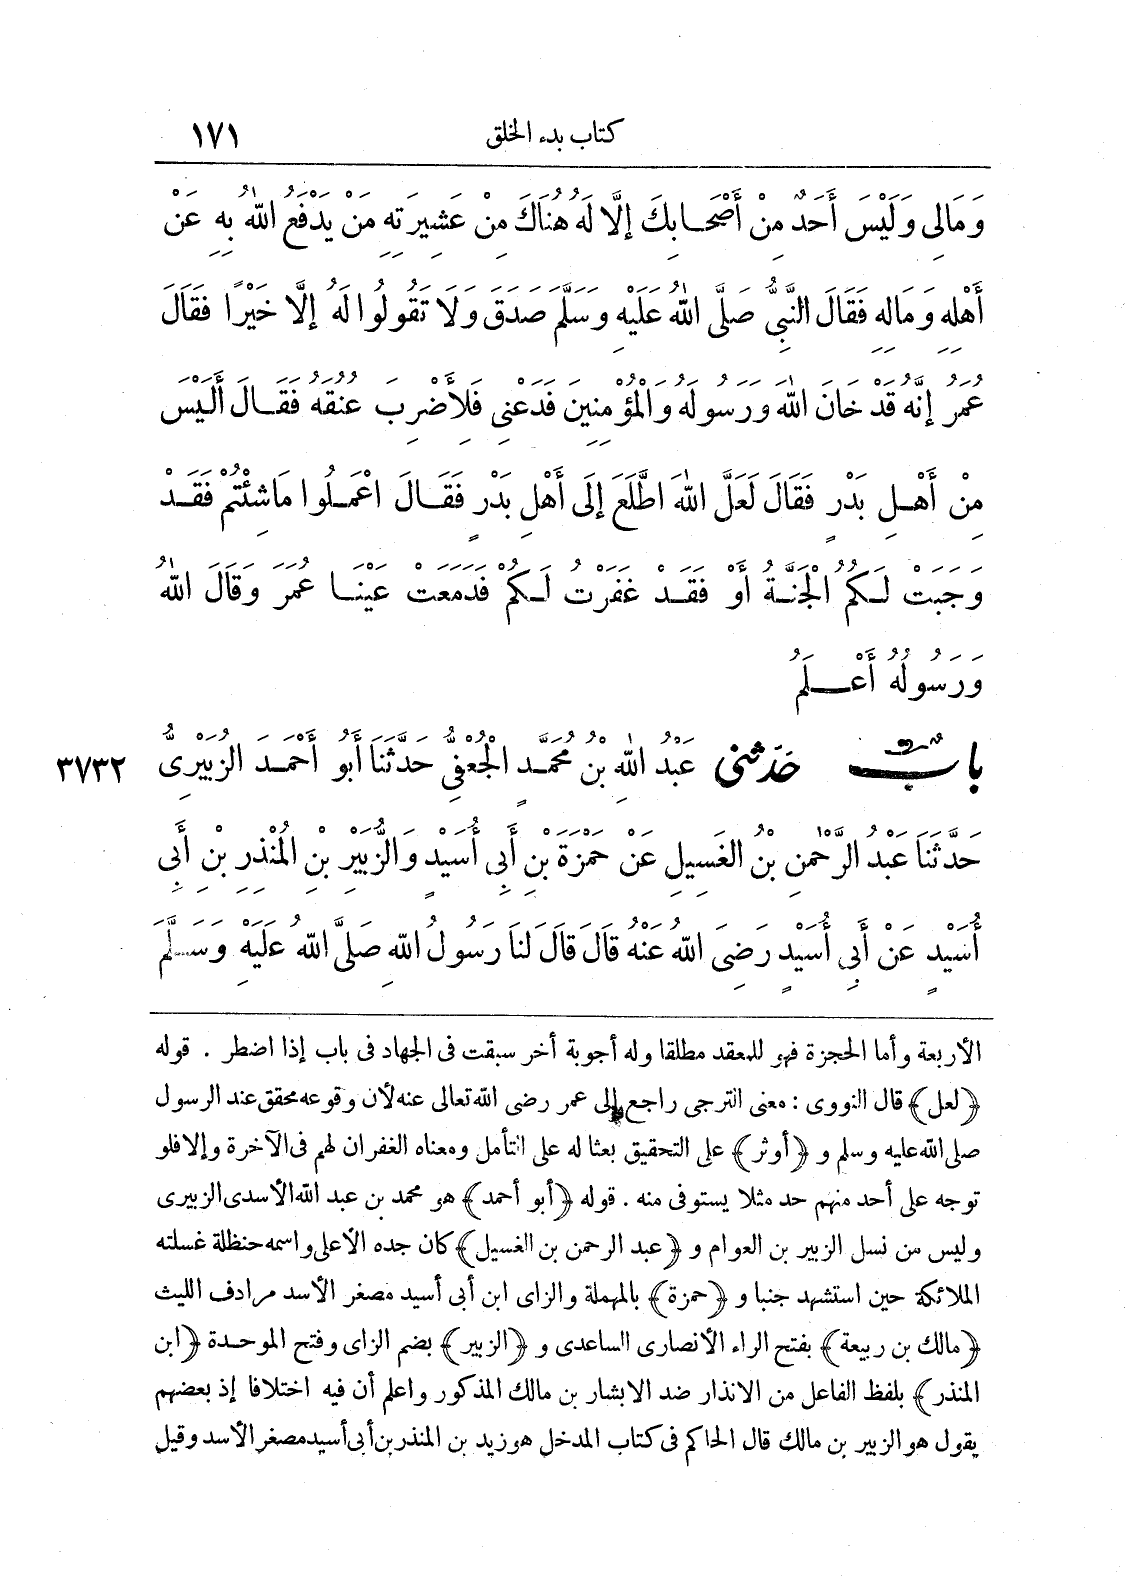 كتاب بدء الخلق ١٧١
وَمَالِي وَلَيْسَ أَحَدٌ مِنْ أَصْحَابِكَ إِلَّا لَهُ هُنَاكَ مِنْ عَشِيرَتِهِ مَنْ يَدْفَعُ اللَّهُ بِهِ عَنْ
أَهْلِهِ وَمَالِهِ فَقَالَ النَّبِيُّ صَلَّى اللَّهُ عَلَيْهِ وَسَلَّمَ صَدَقَ وَلَا تَقُولُوا لَهُ إِلَّا خَيْرًا فَقَالَ
عُمَرُ إِنَّهُ قَدْ خَانَ اللَّهَ وَرَسُولَهُ وَالْمُؤْمِنِينَ فَدَعْنِي فَلِأَضْرِبَ عُنُقَهُ فَقَالَ أَلَيْسَ
مِنْ أَهْلِ بَدْرٍ فَقَالَ لَعَلَّ اللَّهَ اطَّلَعَ إِلَى أَهْلِ بَدْرٍ فَقَالَ اعْمَلُوا مَا شِئْتُمْ فَقَدْ
وَجَبَتْ لَكُمُ الْجَنَّةُ أَوْ فَقَدْ غَفَرْتُ لَكُمْ فَدَمَعَتْ عَيْنَا عُمَرَ وَقَالَ اللَّهُ
وَرَسُولُهُ أَعْلَمُ
بَابٌ حَدَّثَنِي عَبْدُ اللَّهِ بْنُ مُحَمَّدٍ الْجُعْفِيُّ حَدَّثَنَا أَبُو أَحْمَدَ الزُّبَيْرِيُّ ٣٧٣٢
حَدَّثَنَا عَبْدُ الرَّحْمَنِ بْنُ الْغَسِيلِ عَنْ حَمْزَةَ بْنِ أَبِي أُسَيْدٍ وَالزُّبَيْرِ بْنِ الْمُنْذِرِ بْنِ أَبِي
أُسَيْدٍ عَنْ أَبِي أُسَيْدٍ رَضِيَ اللَّهُ عَنْهُ قَالَ قَالَ لَنَا رَسُولُ اللَّهِ صَلَّى اللَّهُ عَلَيْهِ وَسَلَّمَ
الأربعة وأما الحجزة فهو للمعقد مطلقا وله أجوبة أخر سبقت فى الجهاد فى باب إذا اضطر . قوله
﴿لعل﴾ قال النووى : معنى الترجى راجع إلى عمر رضى الله تعالى عنه لأن وقوعه محقق عند الرسول
صلى الله عليه وسلم و ﴿أوثر﴾ على التحقيق بعثا له على التأمل ومعناه الغفران لهم فى الآخرة وإلا فلو
توجه على أحد منهم حد مثلا يستوفى منه . قوله ﴿أبو أحمد﴾ هو محمد بن عبد الله الأسدى الزبيرى
وليس من نسل الزبير بن العوام و ﴿عبد الرحمن بن الغسيل﴾ كان جده الأعلى واسمه حنظلة غسلته
الملائكة حين استشهد جنبا و ﴿حمزة﴾ بالمهملة والزاى ابن أبى أسيد مصغر الأسد مرادف الليث
﴿مالك بن ربيعة﴾ بفتح الراء الأنصارى الساعدى و ﴿الزبير﴾ بضم الزاى وفتح الموحدة ﴿ابن
المنذر﴾ بلفظ الفاعل من الانذار ضد الابشار بن مالك المذكور واعلم أن فيه اختلافا إذ بعضهم
يقول هو الزبير بن مالك قال الحاكم فى كتاب المدخل هو زيد بن المنذر بن أبى أسيد مصغر الأسد وقيل